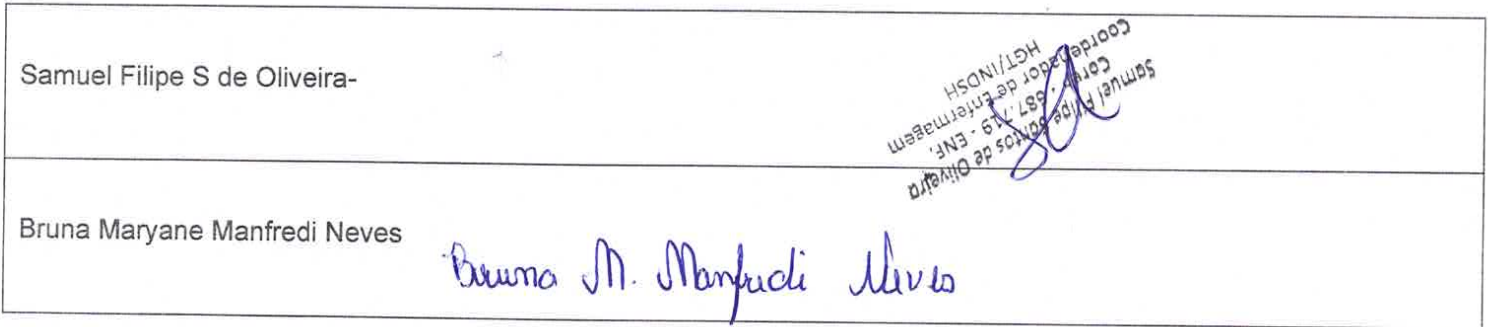 Samuel Filipe S de Oliveira-
Samuel Filipe Santos de Oliveira
Coren . 687.719 - ENF.
Coordenador de Enfermagem
HGT/INDSH
Bruna Maryane Manfredi Neves
Bruna M. Manfredi Neves